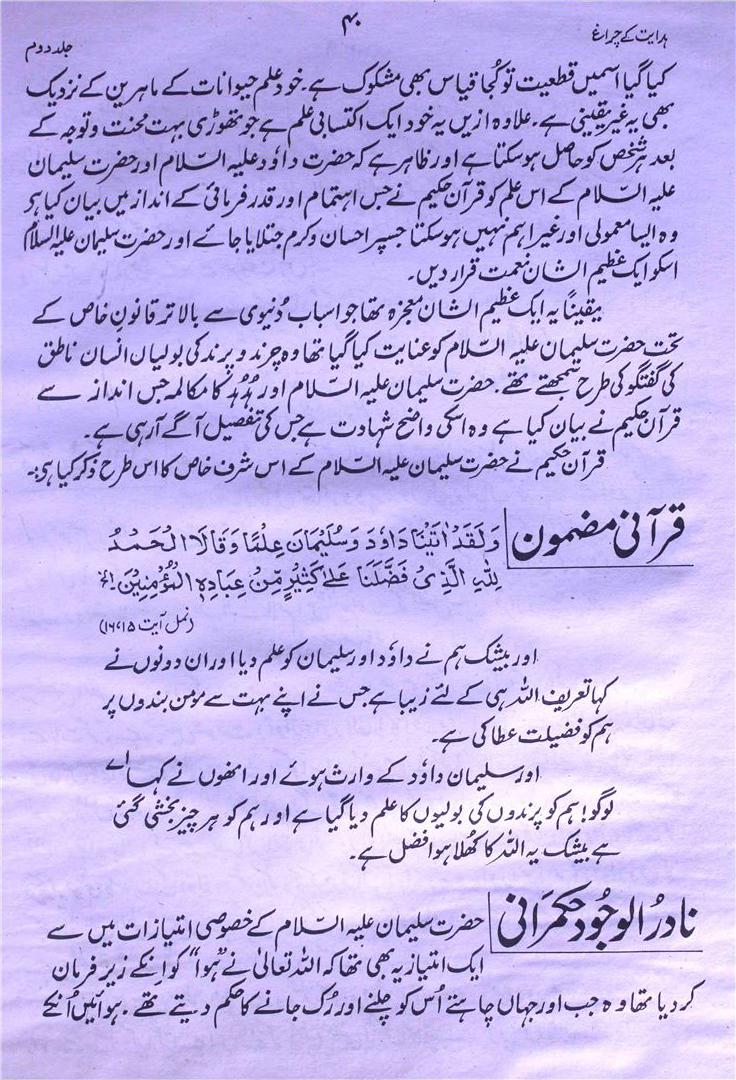 ہدایت کے چراغ
۴۰
جلد دوم
کیا گیا اسمیں قطعیت تو کُجا قیاس بھی مشکوک ہے۔ خود علم حیوانات کے ماہرین کے نزدیک
بھی یہ غیر یقینی ہے۔ علاوہ ازیں یہ خود ایک اکتسابی علم ہے جو تھوڑی بہت محنت و توجہ کے
بعد ہر شخص کو حاصل ہو سکتا ہے اور ظاہر ہے کہ حضرت داؤد علیہ السّلام اور حضرت سلیمان
علیہ السّلام کے اس علم کو قرآن حکیم نے جس اہتمام اور قدر فرمائی کے انداز میں بیان کیا ہے
وہ ایسا معمولی اور غیر اہم نہیں ہو سکتا جسپر احسان و کرم جتلایا جائے اور حضرت سلیمان علیہ السلام
اسکو ایک عظیم الشان نعمت قرار دیں۔
یقیناً یہ ایک عظیم الشان معجزہ تھا جو اسباب دُنیوی سے بالاتر قانونِ خاص کے
تحت حضرت سلیمان علیہ السّلام کو عنایت کیا گیا تھا وہ چرند و پرند کی بولیاں انسان ناطق
کی گفتگو کی طرح سمجھتے تھے۔ حضرت سلیمان علیہ السّلام اور ہُدہُد کا مکالمہ جس انداز سے
قرآن حکیم نے بیان کیا ہے وہ اسکی واضح شہادت ہے جس کی تفصیل آگے آرہی ہے۔
قرآن حکیم نے حضرت سلیمان علیہ السّلام کے اس شرف خاص کا اس طرح ذکر کیا ہے:-
قرآنی مضمون
وَلَقَدْ اٰتَيْنَا دَاوٗدَ وَسُلَيْمَانَ عِلْمًا وَقَالَا الْحَمْدُ
لِلّٰهِ الَّذِىْ فَضَّلَنَا عَلٰى كَثِيْرٍ مِّنْ عِبَادِهِ الْمُؤْمِنِيْنَ الخ
(نمل آیت ۱۵، ۱۶)
اور بیشک ہم نے داؤد اور سلیمان کو علم دیا اور ان دونوں نے
کہا تعریف اللہ ہی کے لئے زیبا ہے جس نے اپنے بہت سے مومن بندوں پر
ہم کو فضیلت عطا کی ہے۔
اور سلیمان داؤد کے وارث ہوئے اور انھوں نے کہا اے
لوگو! ہم کو پرندوں کی بولیوں کا علم دیا گیا ہے اور ہم کو ہر چیز بخشی گئی
ہے بیشک یہ اللہ کا کھُلا ہوا فضل ہے۔
نادرُ الوجُود حکمَرانی
حضرت سلیمان علیہ السّلام کے خصوصی امتیازات میں سے
ایک امتیاز یہ بھی تھا کہ اللہ تعالیٰ نے "ہوا" کو انکے زیر فرمان
کر دیا تھا وہ جب اور جہاں چاہتے اُس کو چلنے اور رُک جانے کا حکم دیتے تھے۔ ہوائیں اُنکے